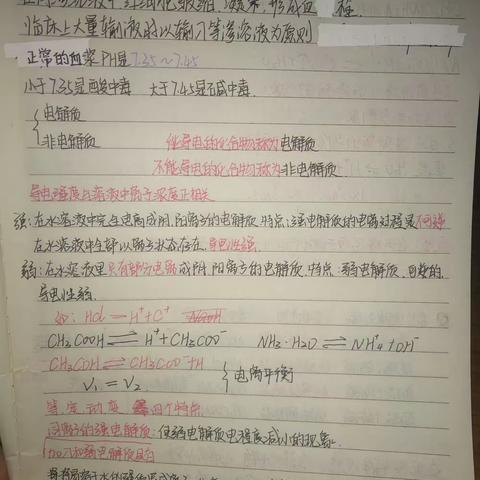 临床上大量输液时以输入等渗溶液为原则
正常的血浆PH是7.35～7.45
小于7.35是酸中毒 大于7.45是碱中毒.
电解质
非电解质 能导电的化合物称为电解质
不能导电的化合物称为非电解质
导电强度与溶液中离子浓度正相关
强:在水溶液中完全电离成阴,阳离子的电解质.特点:强电解质的电离过程是不可逆
在水溶液中全部以离子状态存在,导电性强.
弱:在水溶液里只有部分电离成阴,阳离子的电解质.特点:弱电解质 可逆的.
导电性弱.
如: Hcl = H⁺+C⁺ NaOH
CH₃COOH ⇌ H⁺+CH₃COO⁻ NH₃·H₂O ⇌ NH₄⁺+OH⁻
CH₃COH ⇌ CH₃COO⁻+H
V₁=V₂ 电离平衡
等定动变 四个特点
同离子的强电解质:使弱电解质电程度减小的现象.
加入和弱电解质具有